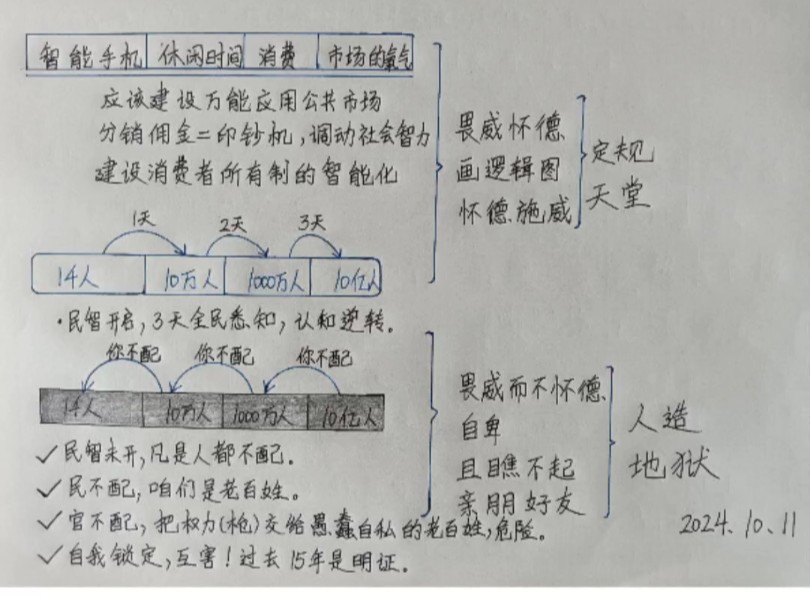 智能手机 休闲时间 消费 市场的氧气
应该建设万能应用公共市场
分销佣金=印钞机,调动社会智力
建设消费者所有制的智能化
畏威怀德
画逻辑图
怀德施威
定规
天堂
1天 2天 3天
14人 10万人 1000万人 10亿人
·民智开启,3天全民悉知,认知逆转。
你不配 你不配 你不配
14人 10万人 1000万人 10亿人
畏威而不怀德
自卑
且瞧不起
亲朋好友
人造
地狱
✓民智未开,凡是人都不配。
✓民不配,咱们是老百姓。
✓官不配,把权力(枪)交给愚蠢自私的老百姓,危险。
✓自我锁定,互害!过去15年是明证。
2024.10.11